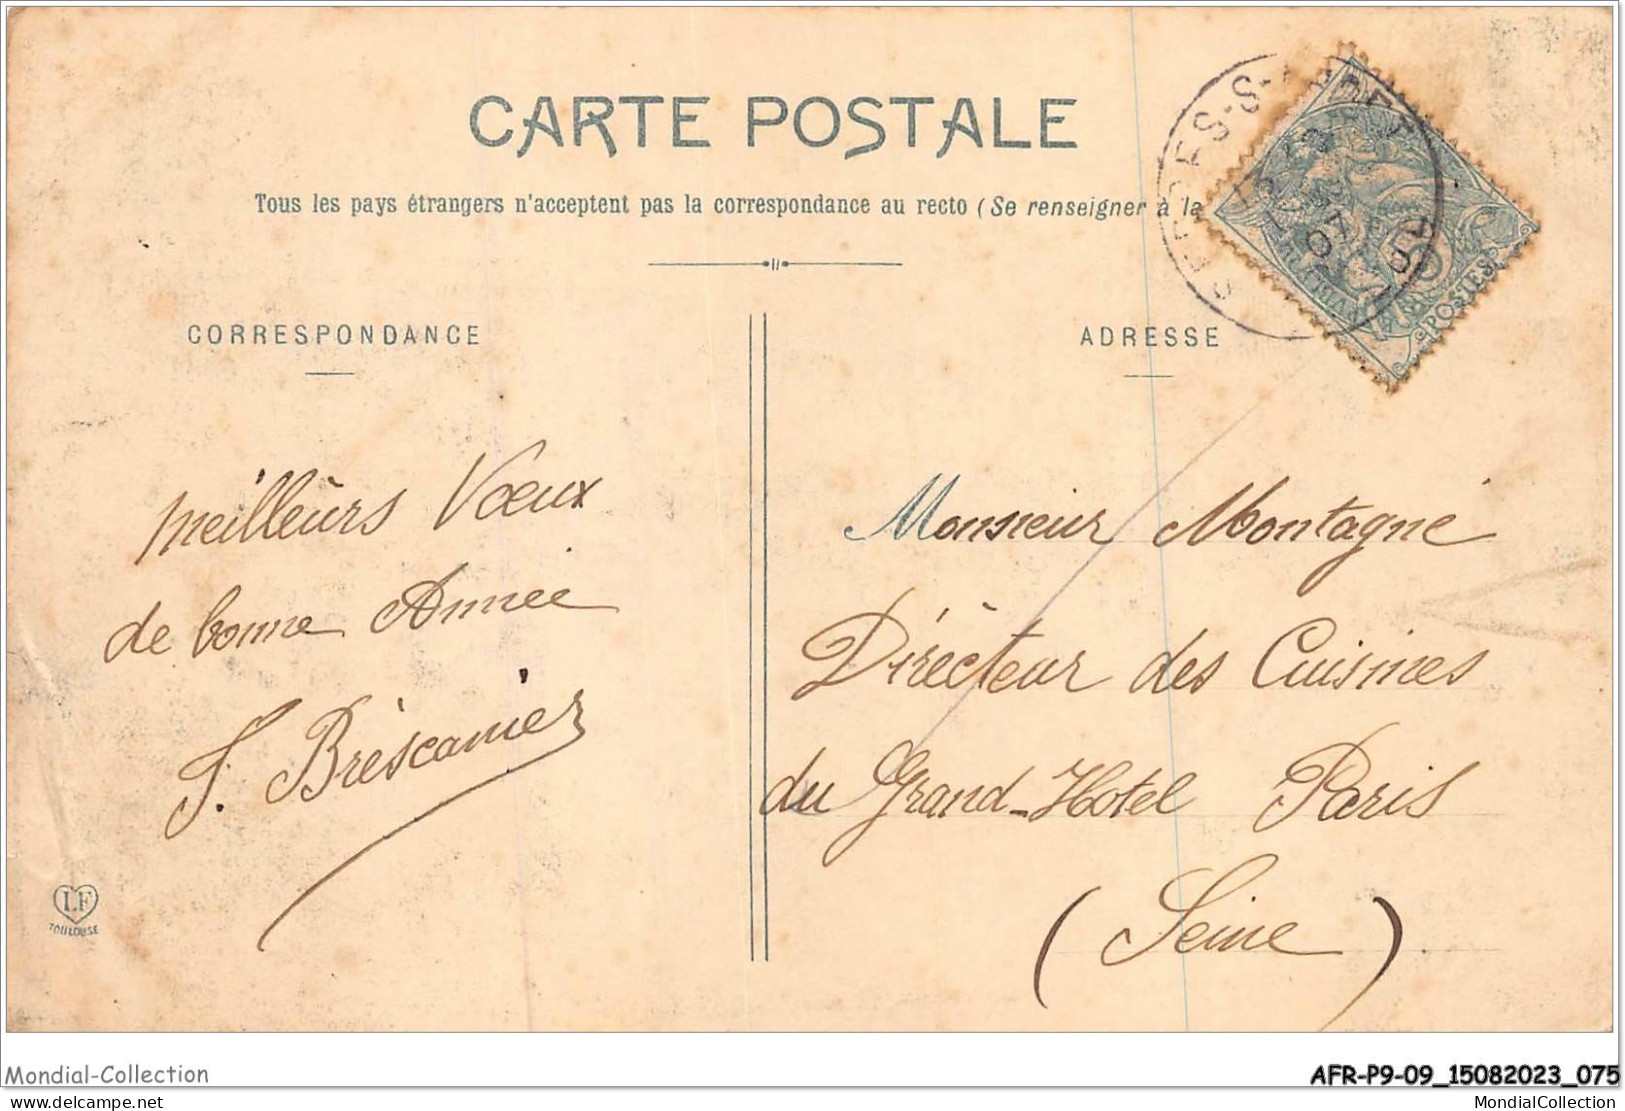 CARTE POSTALE
Tous les pays étrangers n'acceptent pas la correspondance au recto (Se renseigner à la
CORRESPONDANCE
ADRESSE
POSTES
meilleurs Vœux
de bonne Année
J. Bréscanier
Monsieur Montagné
Dirécteur des Cuisines
du Grand-Hotel Paris
(Seine)
LF
TOULOUSE
Mondial-Collection
AFR-P9-09_15082023_075
delcampe.net
MondialCollection